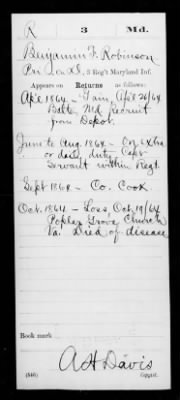 R 3 Md.
Benjamin F. Robinson
Pri, Co. , 3 Reg't Maryland Inf.
Appears on Returns as follows:
Apl 1864 - Gain, Apl 26/64
Balto Md. recruit
from Depot.
June to Aug. 1864 - On extra
or daily duty Capt
Servant within Regt.
Sept 1864 - Co. Cook
Oct. 1864 - Loss, Oct. 19/64
Poplar Grove Church
Va. Died of disease
Book mark
A H Davis
(546) Copyist.